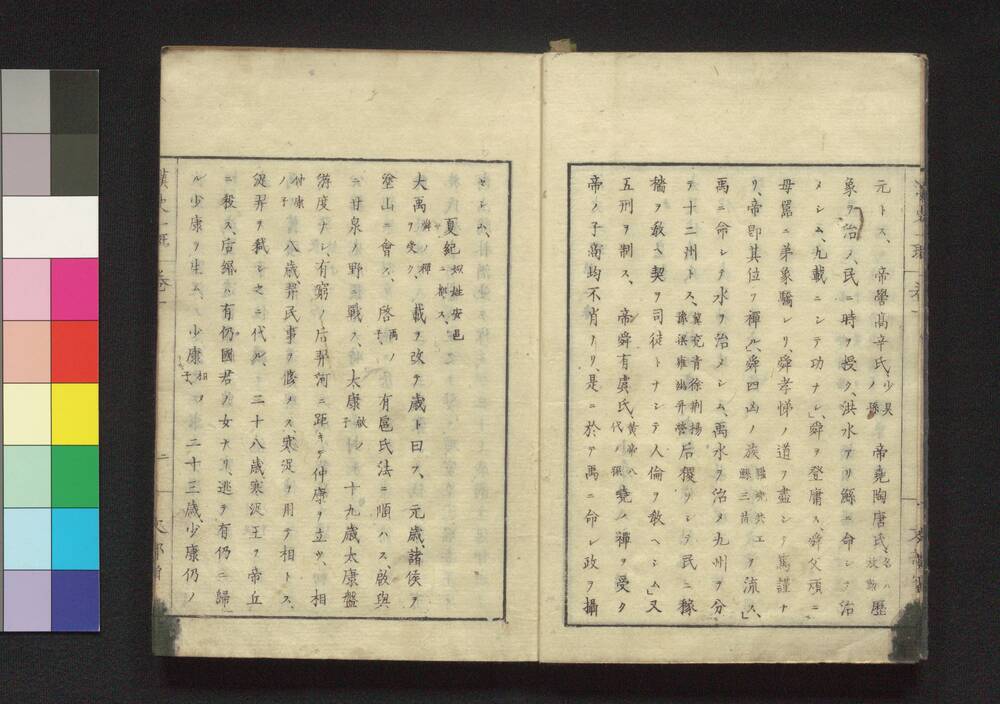 元トス、 帝嚳高辛氏、少昊ノ孫 帝堯陶唐氏、名ハ放勲 歷
象ヲ治メ、民ニ時ヲ授ク、洪水アリ鯀ニ命シテ治
メシム、九載ニシテ功ナシ、舜ヲ登庸ス、舜父頑ニ
母嚚ニ弟象驕レリ、舜孝悌ノ道ヲ盡シテ篤謹ナ
リ、帝即其位ヲ禪ル、舜四凶ノ族驩兜共工鯀三苗ヲ流ス、
禹ニ命シテ水ヲ治メシム、禹水ヲ治メ九州ヲ分
テ十二州トス、冀兗青徐荆揚豫梁雍幽并營 后稷ヲシテ民ニ稼
穡ヲ敎ヘ契ヲ司徒トナシテ人倫ヲ敎ヘシム又
五刑ヲ制ス、 帝舜有虞氏、黄帝八代ノ孫 堯ノ禪ヲ受ク
帝ノ子商均不肖ナリ、是ニ於テ禹ニ命シ政ヲ攝
セシム、
夏紀 姒姓安邑ニ都ス、
大禹 舜ノ禪ヲ受ク、 載ヲ改テ歲ト曰フ、元歲、諸侯ヲ
塗山ニ會ス、 啓 禹ノ子、 有扈氏法ニ順ハス、啟與
ニ甘泉ノ野ニ戰ス、 太康 啟ノ子 十九歲太康盤
游度ナシ、有窮ノ后羿河ニ距キテ仲康ヲ立ツ、相
仲康ノ子 八歲羿民事ヲ脩メス、寒浞ヲ用テ相トス、
浞羿ヲ弑シテ之ニ代ル、二十八歲寒浞王ヲ帝丘
ニ殺ス、后緡ハ有仍國君ノ女ナリ、逃テ有仍ニ歸
ル少康ヲ生ム、 少康 相ノ子、 二十三歲、少康仍ノ
漢史一班 卷一
二